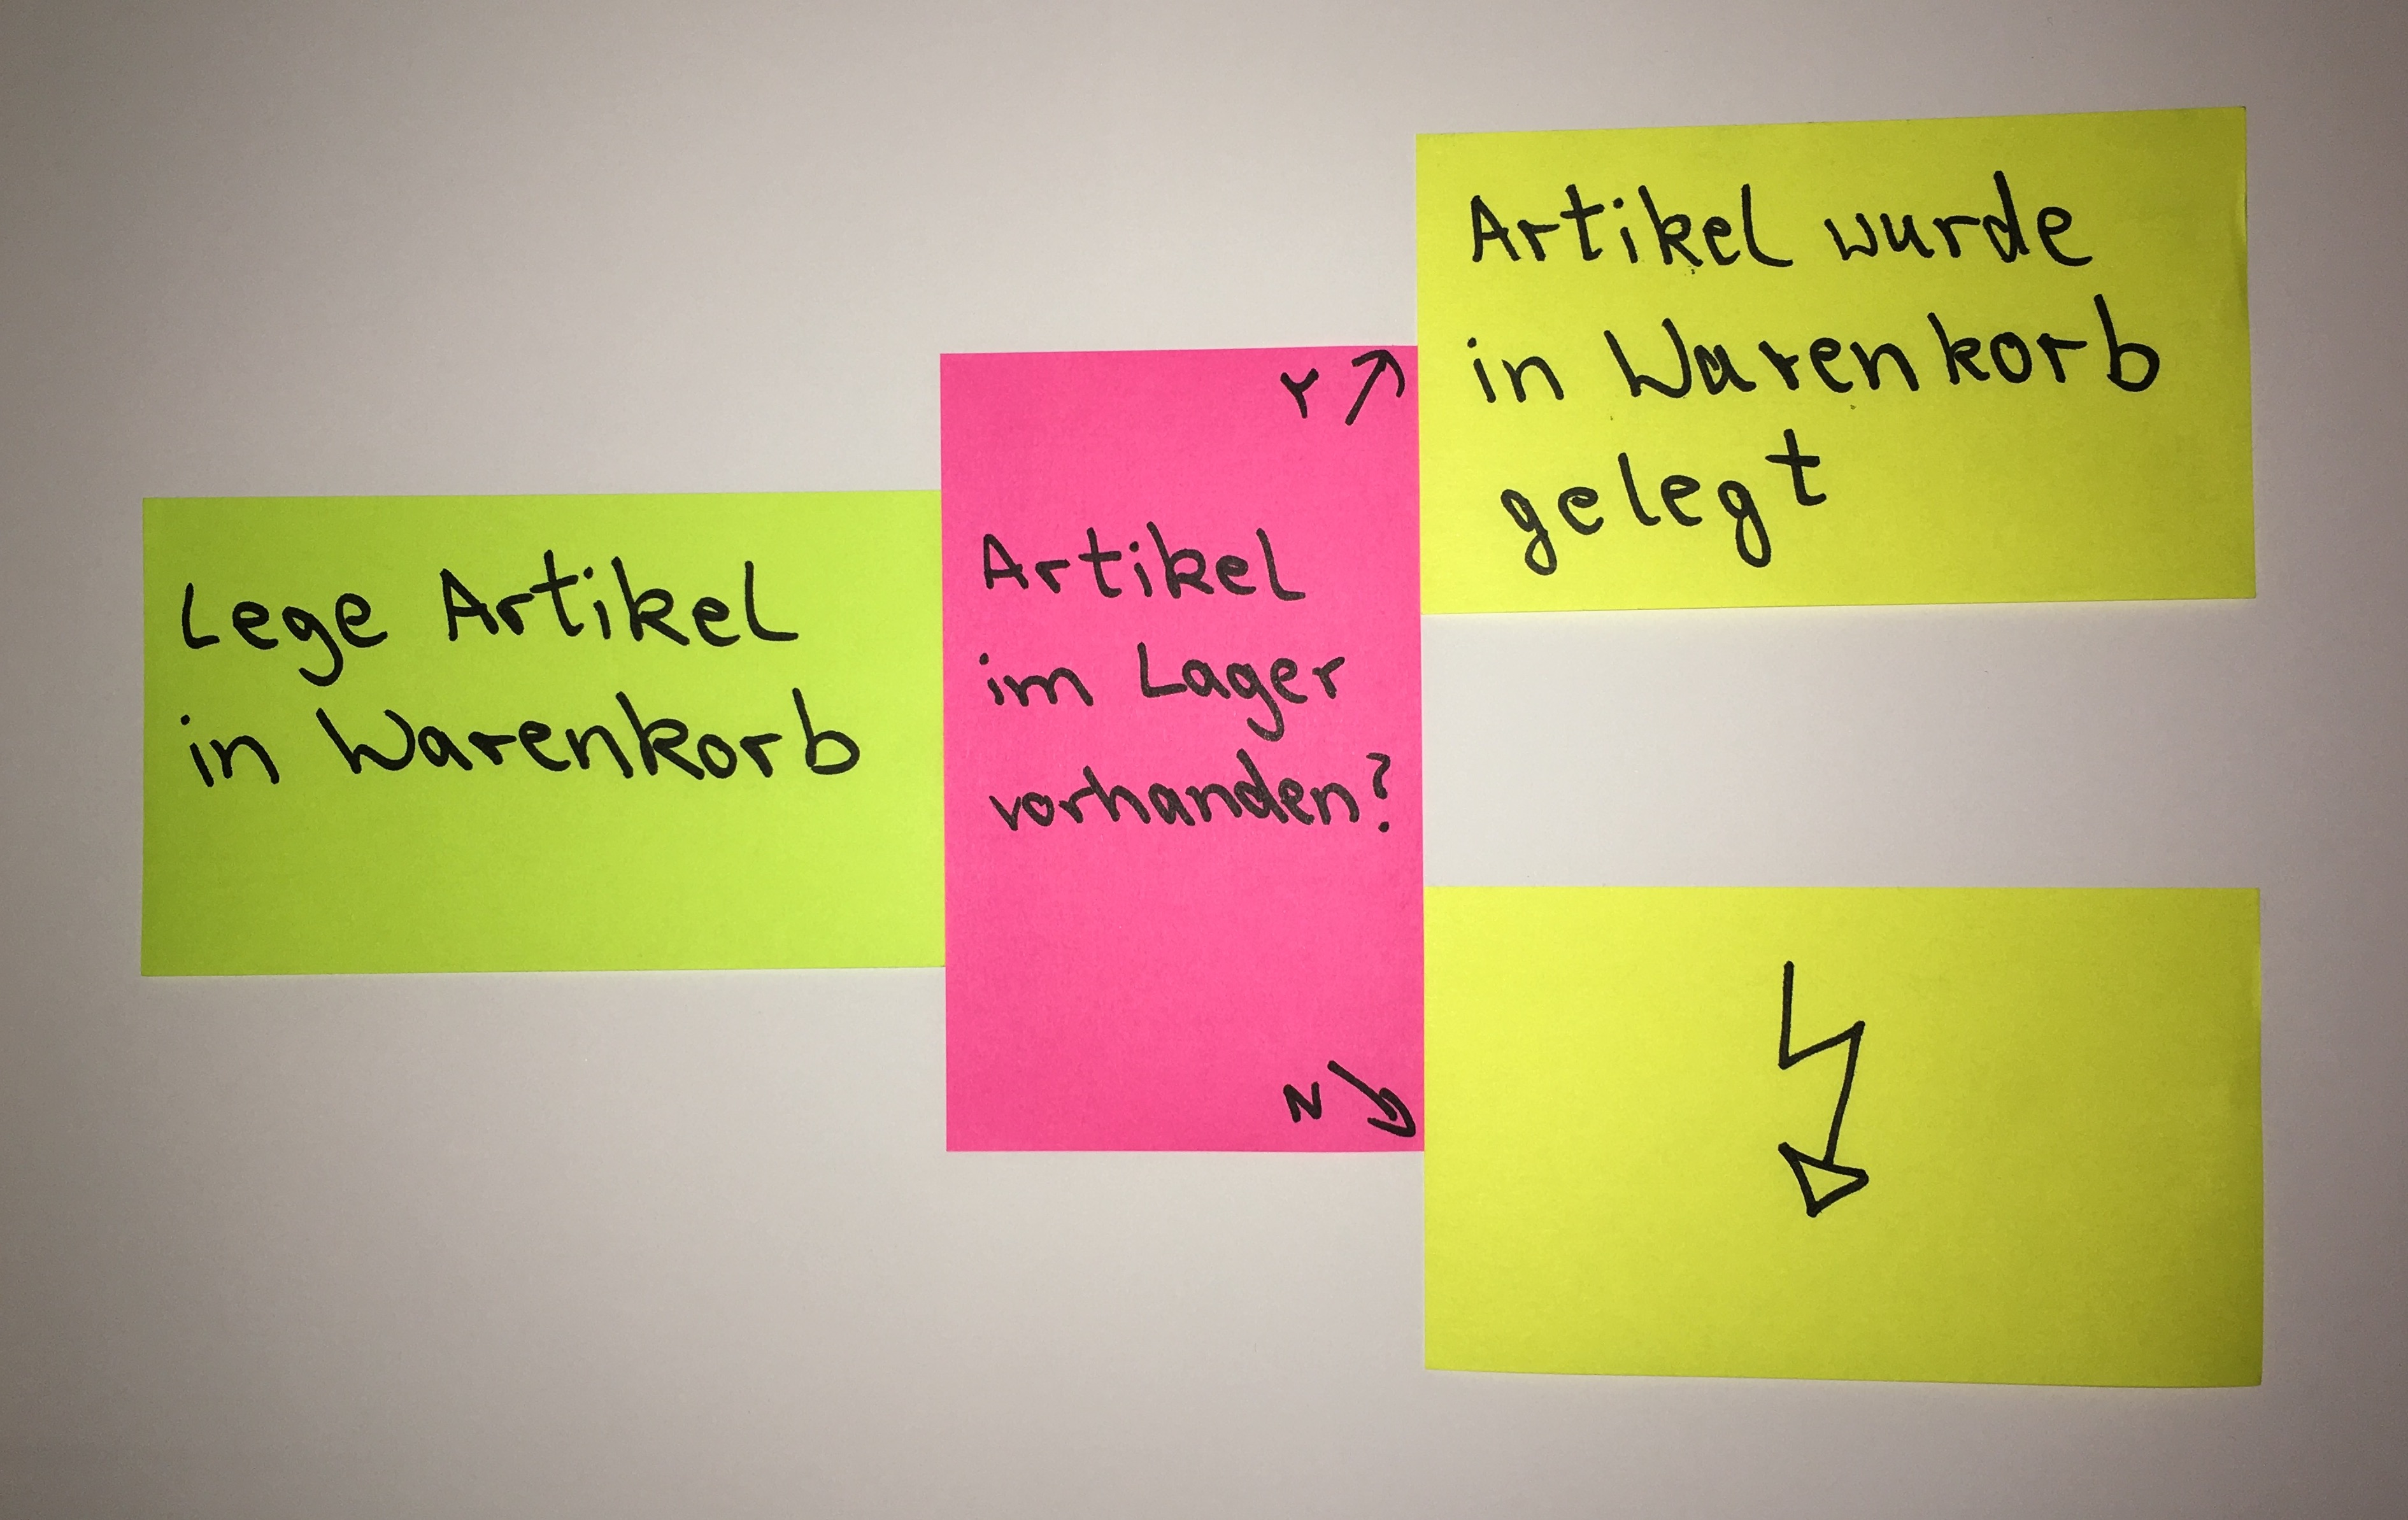 Lege Artikel
in Warenkorb
Artikel
im Lager
vorhanden?
Y
N
Artikel wurde
in Warenkorb
gelegt